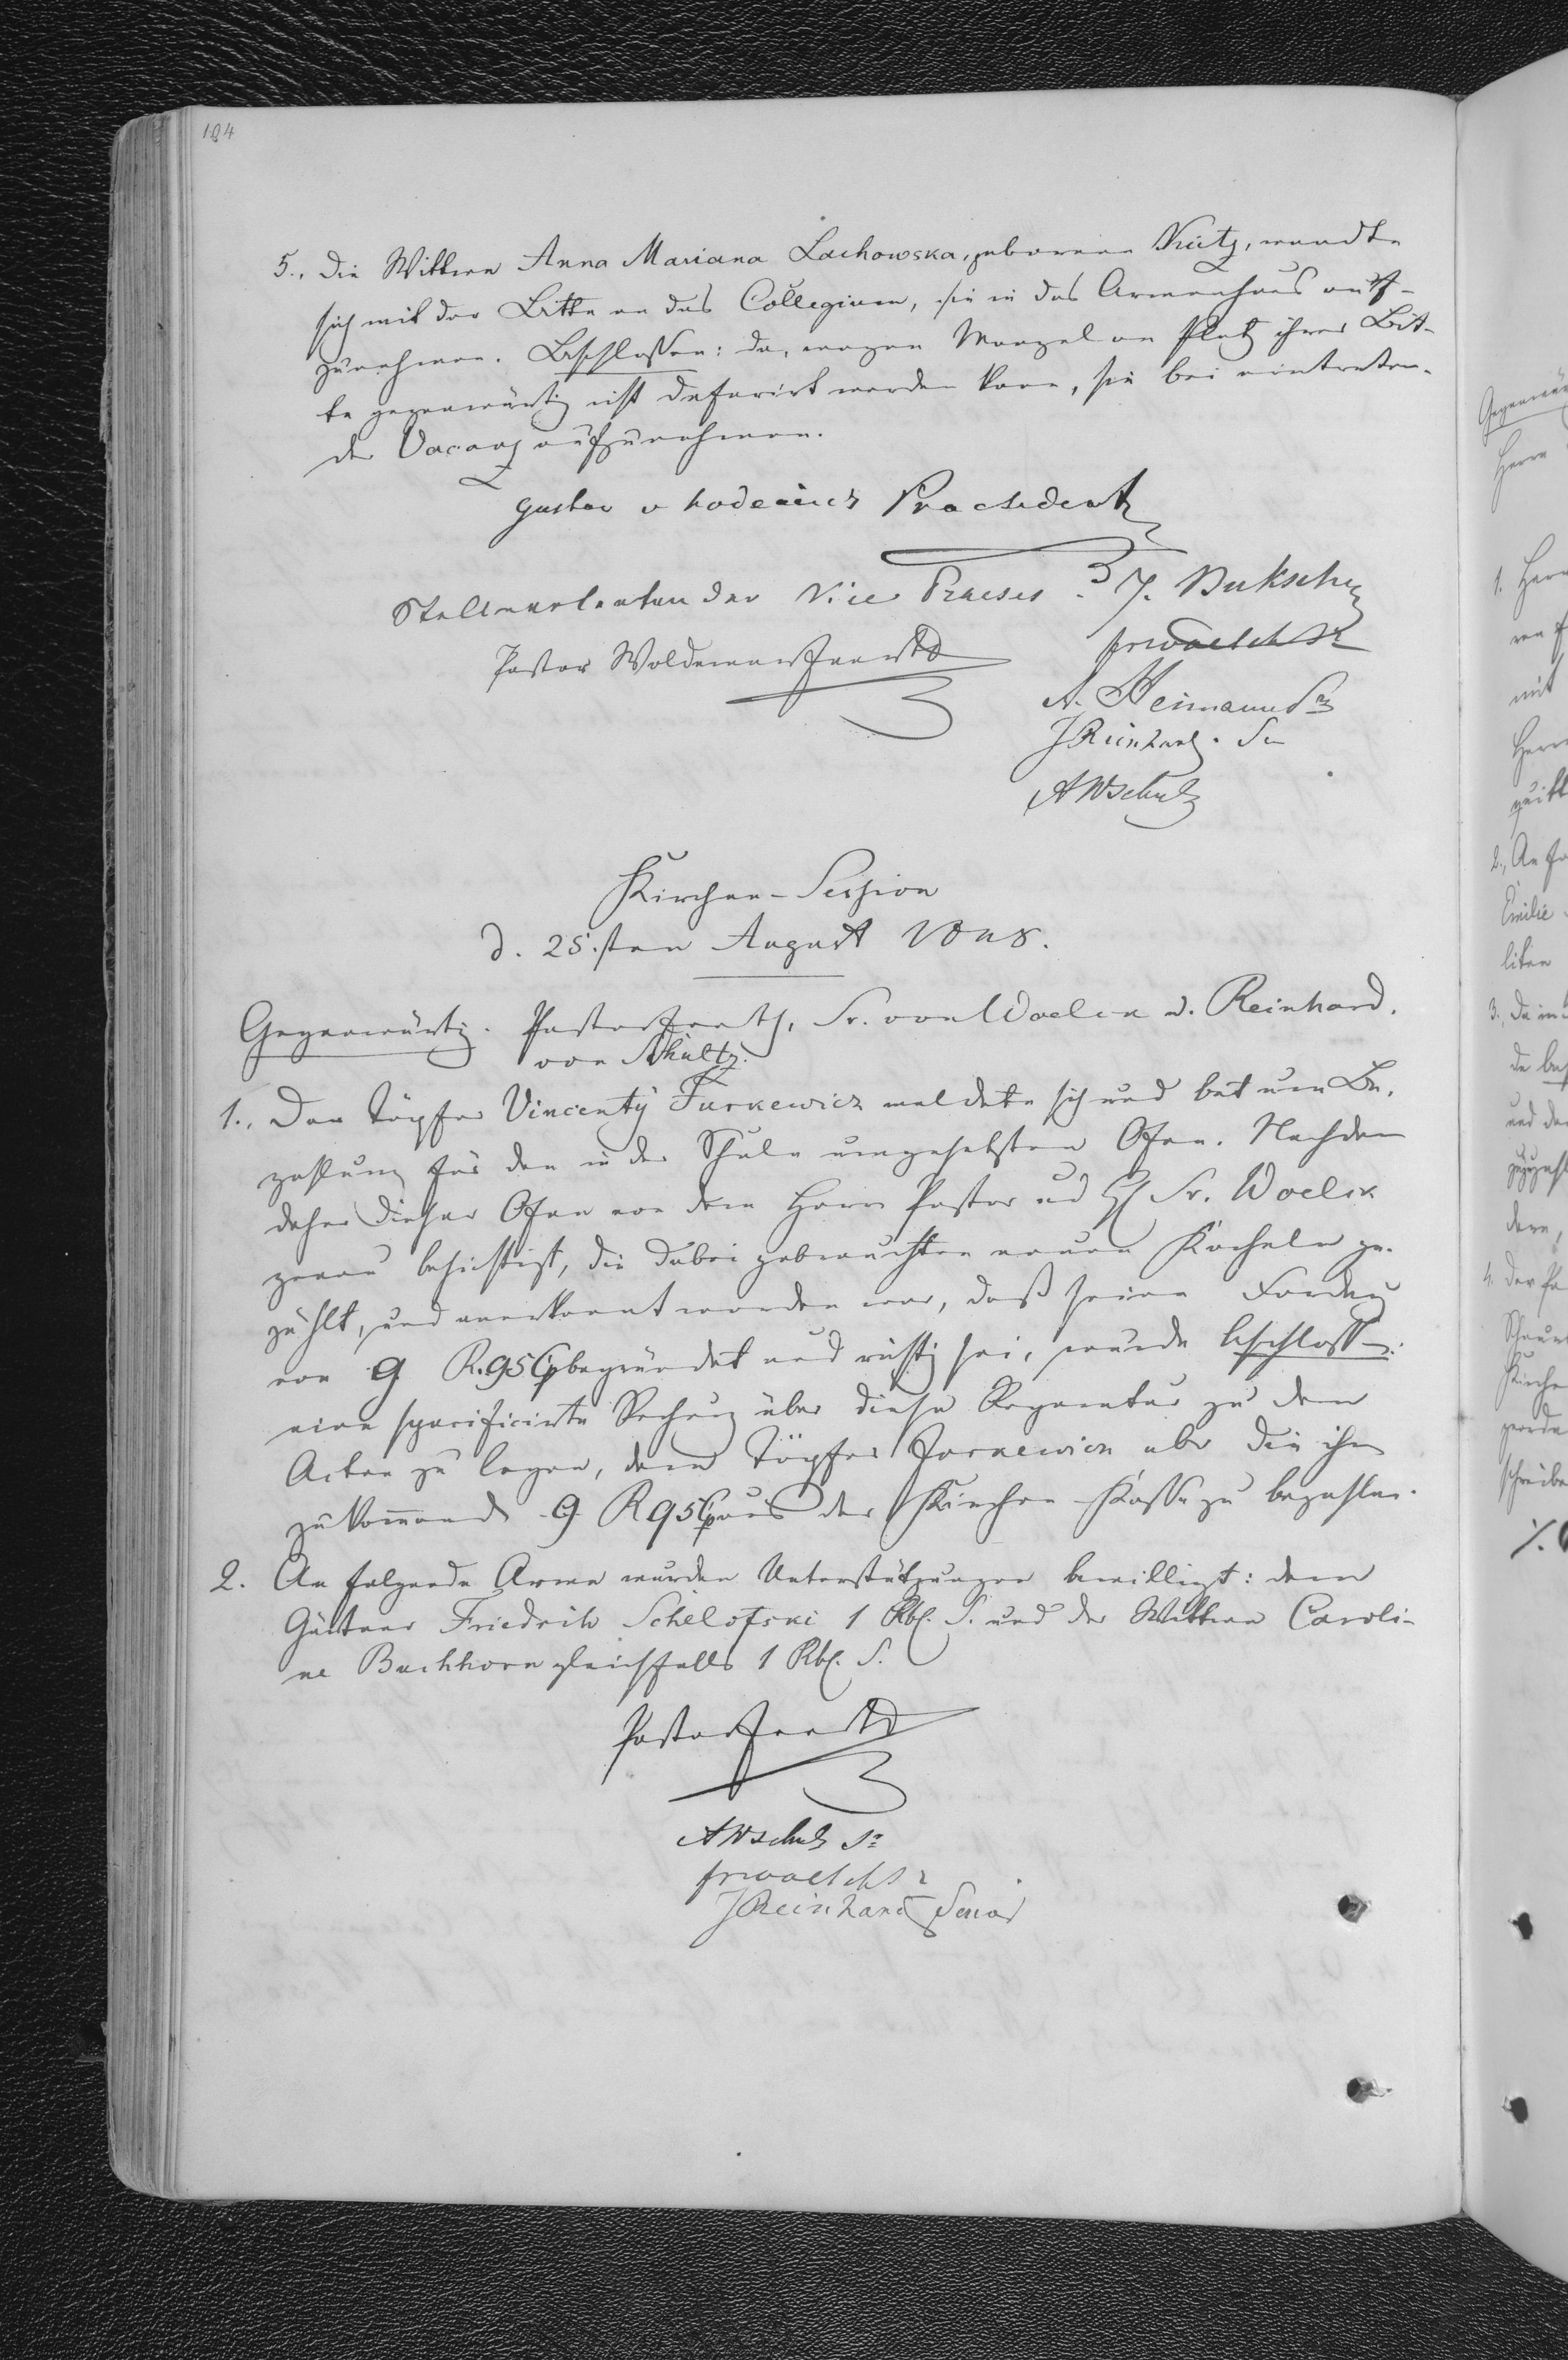 184
5., Die Wittwe Anna Mariana Lachowska, geborene Krütz, wandte
sich mit der Bitte an das Collegium, sie in das Armenhaus auf-
zunehmen. Beschlossen: da, wegen Mangel an Platz ihrer Bit-
te gegenwärtig nicht deferirt werden kann, sie bei eintreten-
der Vacanz aufzunehmen.
Gustav v Praesident
Stellvertretender Vice Praeses J. Buksch
Pastor Woldemar
fr woelck Sr
A. Heimann Sr
J Reinhard. Sen
A W Schulz
Kirchen-Session
d. 25.sten August 1848.
Gegenwärtig. Pastor Sr. von Woelck u. Reinhard.
von Schultz.
1., Der Töpfer Vincenty Jurkewicz meldete sich und bat um Be-
zahlung für den in der Schule umgesetzten Ofen. Nachdem
daher dieser Ofen von dem Herrn Pastor und H Sr. Woelck
genau besichtigt, die dabei gebrauchten neuen Kacheln ge-
zählt, und anerkannt worden war, daß seine Forderung
von 9 R. 95 Cp begründet und richtig sei, wurde beschlossen:
eine specificirte Rechnung über diese Reparatur zu den
Acten zu legen, dem Töpfer Jurkewicz aber die ihm
zukommende 9 R 95 Cp aus der Kirchen-Kasse zu bezahlen.
2. An folgende Arme wurden Unterstützungen bewilligt: dem
Gärtner Friedrich Schelofski 1 Rbl. S. und der Wittwe Caroli-
ne Buchhorn gleichfalls 1 Rbl. S.
Pastor
A W Schulz Sr
fr woelck Sr
J Reinhard Senior